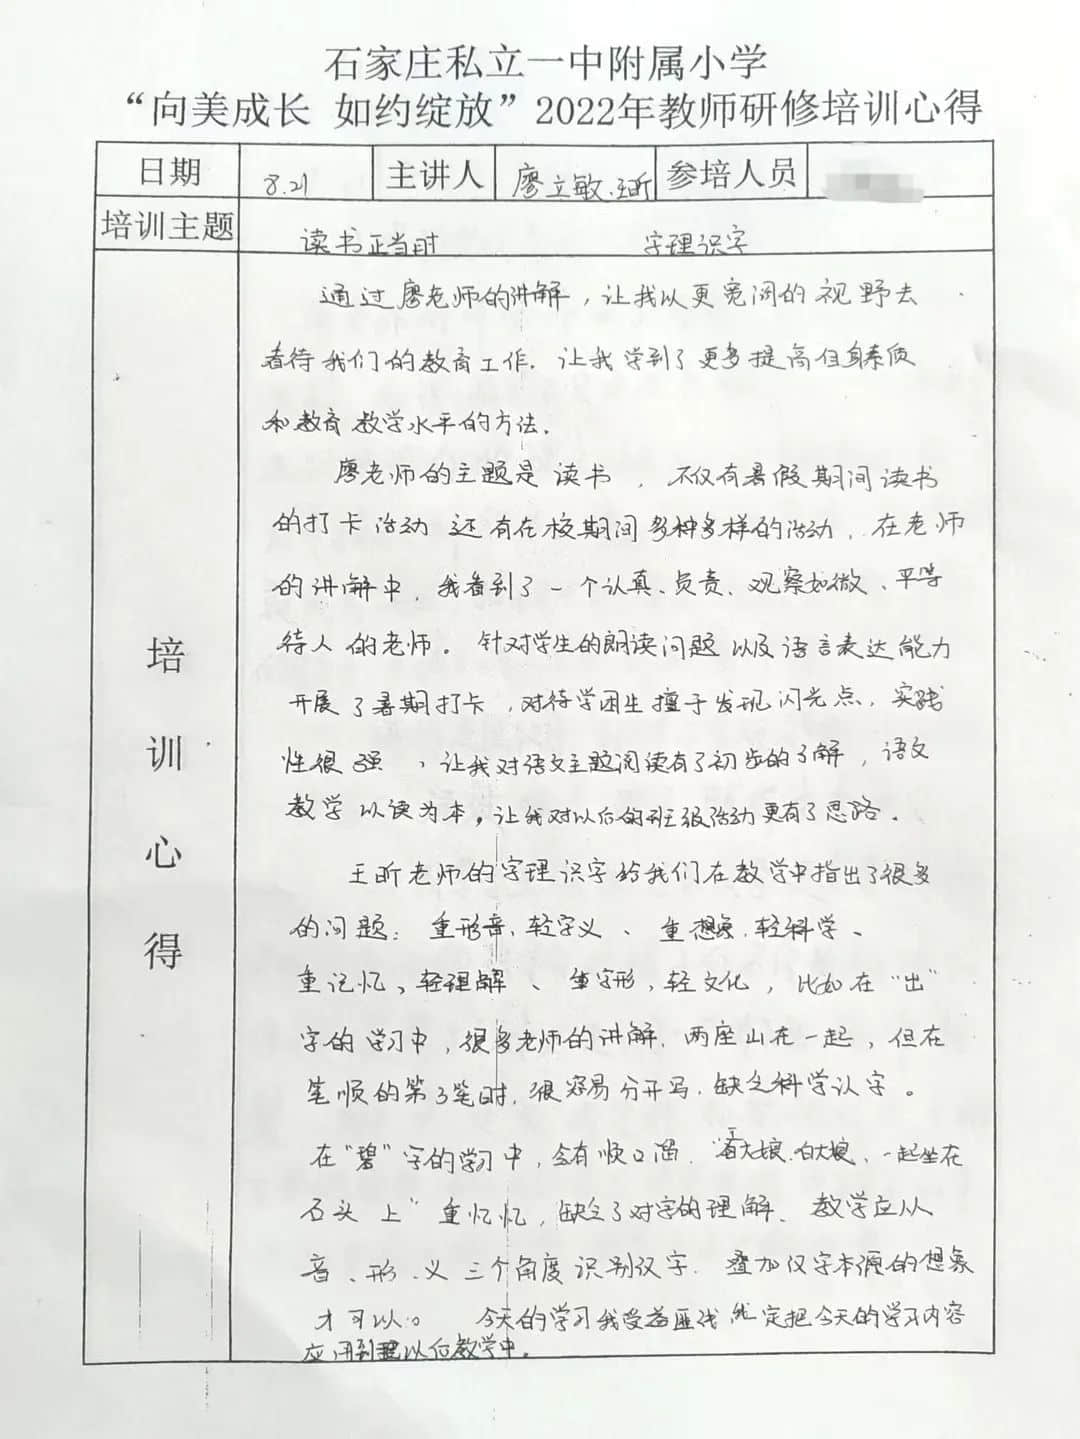 石家庄私立一中附属小学
“向美成长 如约绽放”2022年教师研修培训心得
日期 8.21 主讲人 廖立敏、王昕 参培人员
培训主题 读书正当时 字理识字
培训心得
通过廖老师的讲解，让我以更宽阔的视野去
看待我们的教育工作．让我学到了更多提高自身素质
和教育教学水平的方法．
廖老师的主题是读书，不仅有暑假期间读书
的打卡活动 还有在校期间多种多样的活动，在老师
的讲解中，我看到了一个认真、负责、观察如微、平等
待人的老师。针对学生的朗读问题以及语言表达能力
开展了暑期打卡，对待学困生擅于发现闪光点，实践
性很强，让我对语文主题阅读有了初步的了解，语文
教学以读为本，让我对以后的班级活动更有了思路。
王昕老师的字理识字给我们在教学中指出了很多
的问题：重形音，轻字义、重想象，轻科学、
重记忆、轻理解、重字形，轻文化，比如在“出”
字的学习中，很多老师的讲解，两座山在一起，但在
笔顺的第3笔时，很容易分开写，缺乏科学认字。
在“碧”字的学习中，会有顺口溜，“王大娘，白大娘，一起坐在
石头上”重忆忆，缺乏了对字的理解、教学应从
音、形、义三个角度识别汉字．叠加汉字本源的想象
才可以。 今天的学习我受益匪浅 定把今天的学习内容
应用到以后教学中。